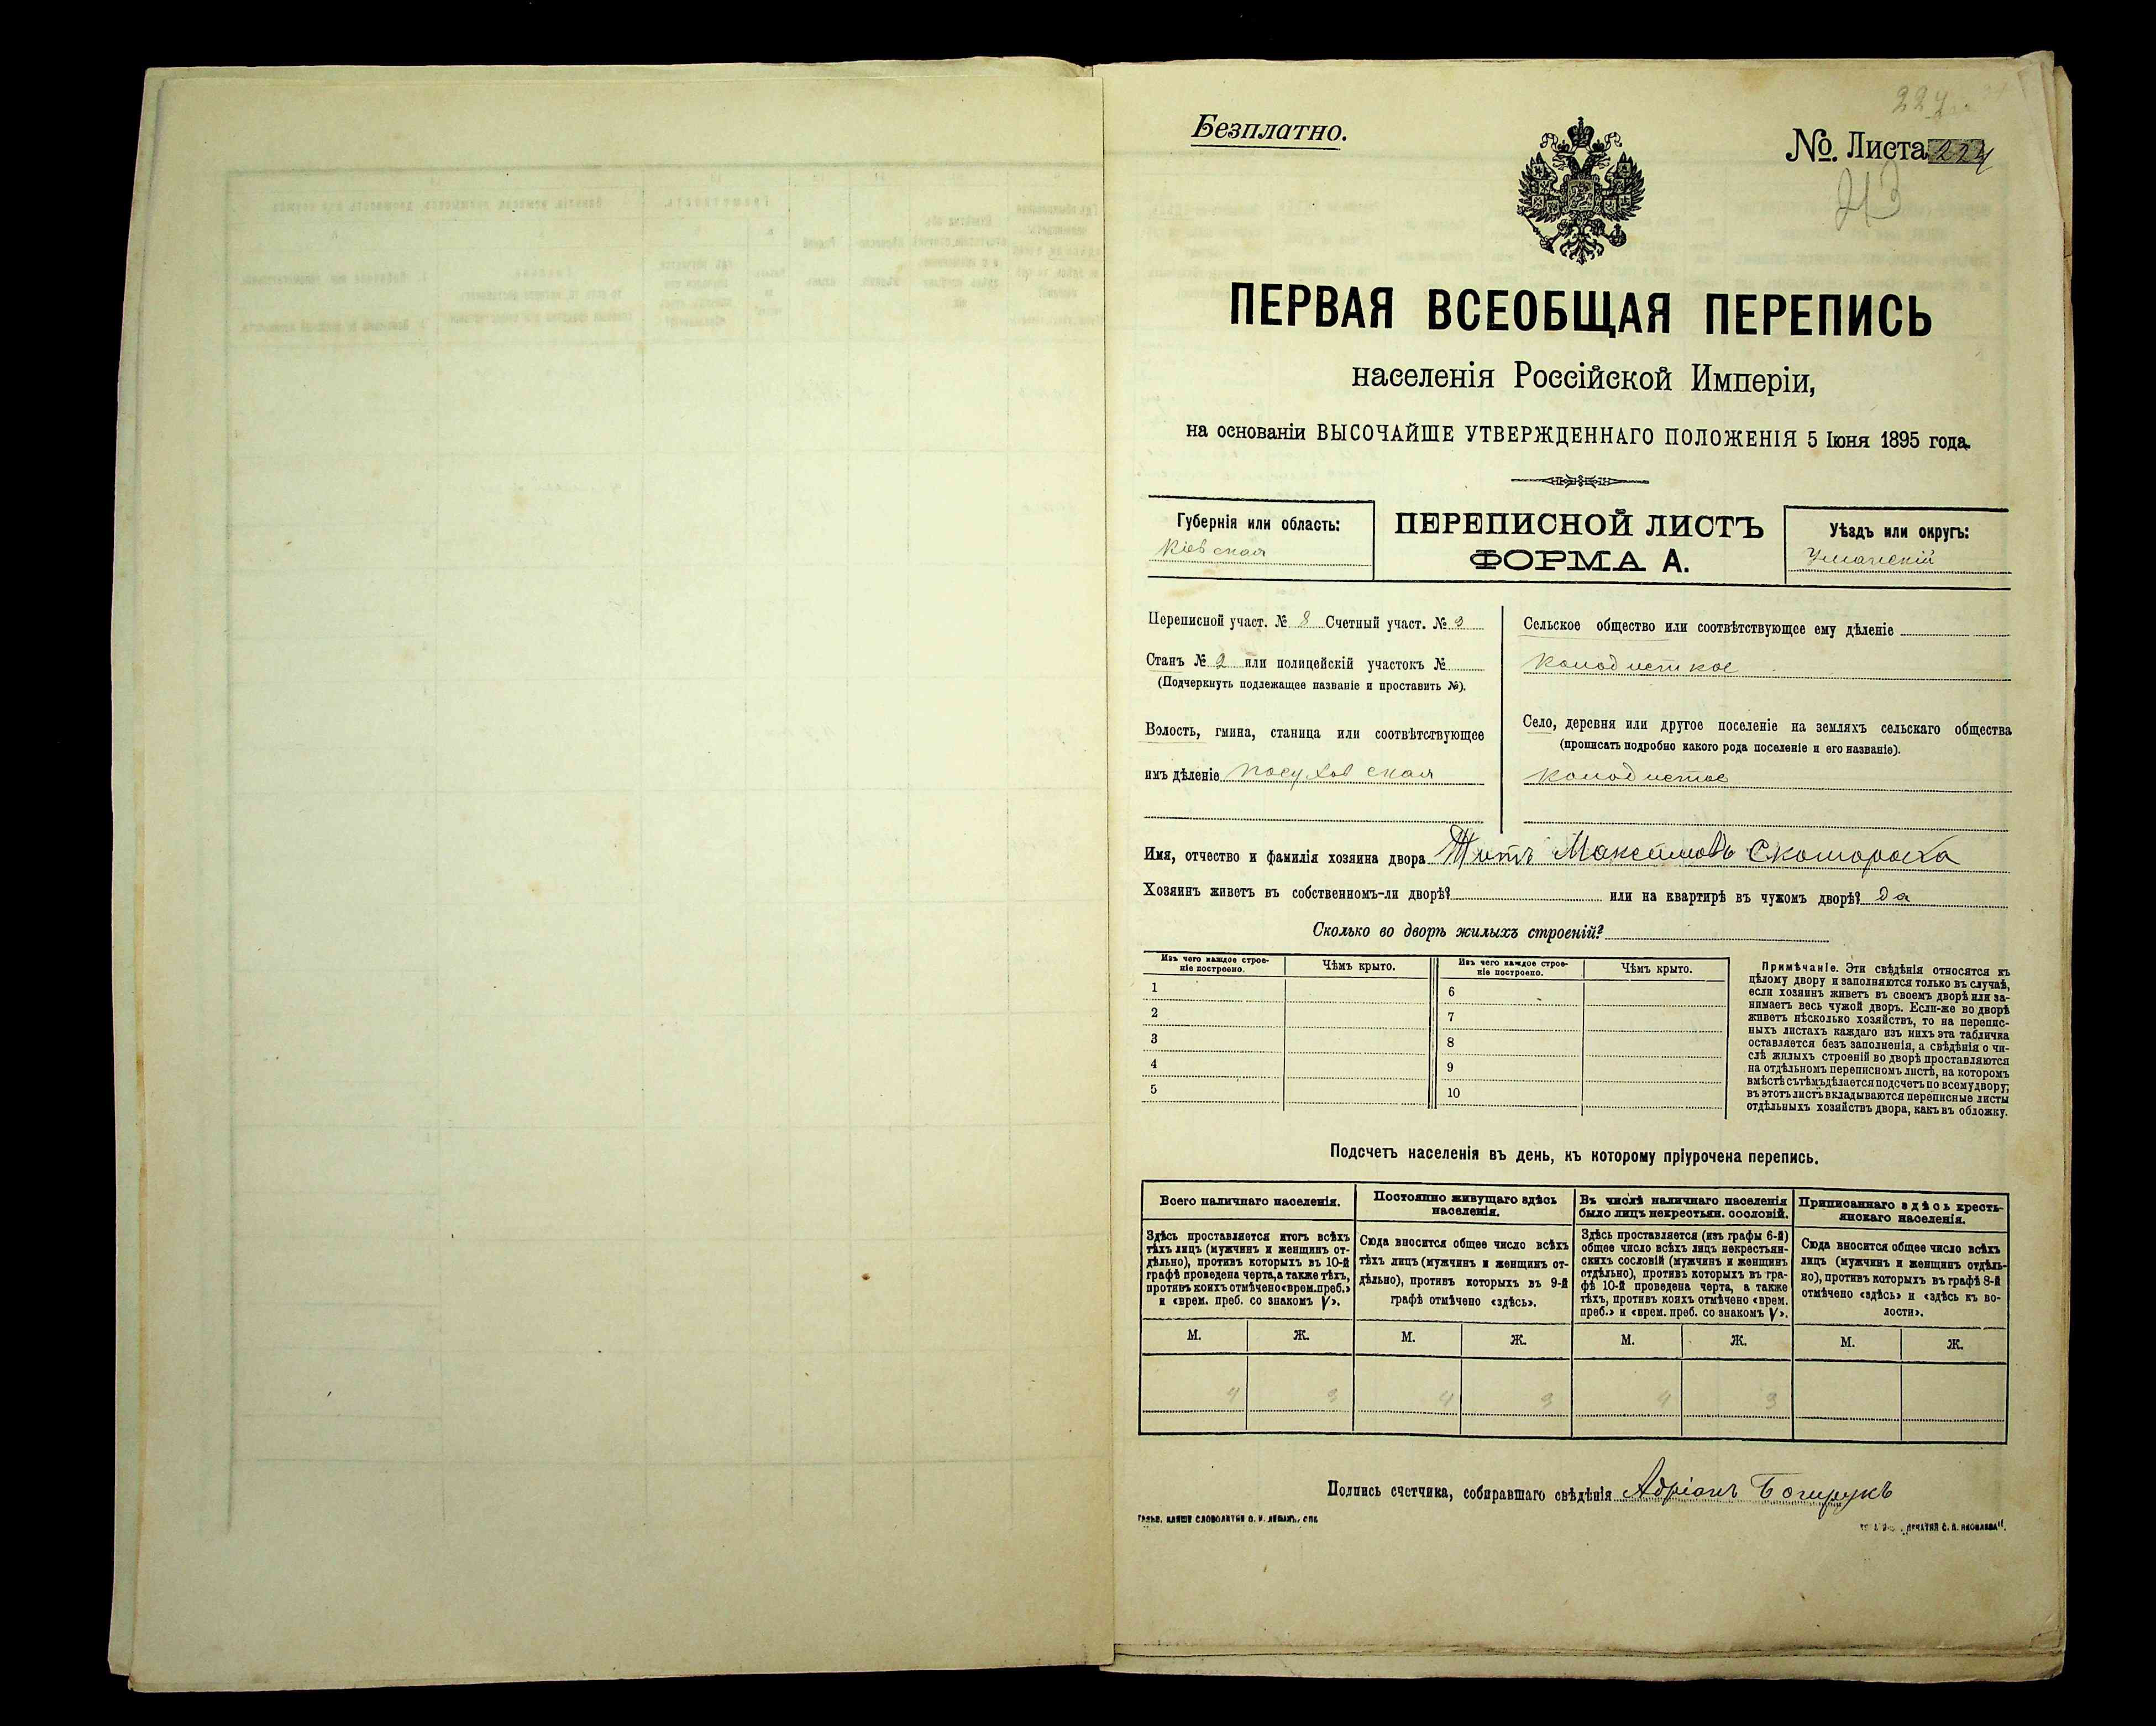 227
Безплатно.
№. Листа 224
213
ПЕРВАЯ ВСЕОБЩАЯ ПЕРЕПИСЬ
населенія Россійской Имперіи,
на основаніи ВЫСОЧАЙШЕ УТВЕРЖДЕННАГО ПОЛОЖЕНІЯ 5 Іюня 1895 года.
Губернія или область:
Кіевская
ПЕРЕПИСНОЙ ЛИСТЪ
ФОРМА А.
Уѣздъ или округъ:
Уманскій
Переписной участ. № 8 Счетный участ. № 3
Станъ № 2 или полицейскій участокъ №
(Подчеркнуть подлежащее названіе и проставить №).
Волость, гмина, станица или соотвѣтствующее
имъ дѣленіе Посуховская
Сельское общество или соотвѣтствующее ему дѣленіе
Колодисткое
Село, деревня или другое поселеніе на земляхъ сельскаго общества
(прописать подробно какого рода поселеніе и его названіе).
Колодистое
Имя, отчество и фамилія хозяина двора Титъ Максимовъ Скомороха
Хозяинъ живетъ въ собственномъ-ли дворѣ? или на квартирѣ въ чужомъ дворѣ? да
Сколько во дворѣ жилыхъ строеній?
Изъ чего каждое строе-
ніе построено.
Чѣмъ крыто.
Изъ чего каждое строе-
ніе построено.
Чѣмъ крыто.
1
2
3
4
5
6
7
8
9
10
Примѣчаніе. Эти свѣдѣнія относятся къ
цѣлому двору и заполняются только въ случаѣ,
если хозяинъ живетъ въ своемъ дворѣ или за-
нимаетъ весь чужой дворъ. Если-же во дворѣ
живетъ нѣсколько хозяйствъ, то на перепис-
ныхъ листахъ каждаго изъ нихъ эта табличка
оставляется безъ заполненія, а свѣдѣнія о чи-
слѣ жилыхъ строеній во дворѣ проставляются
на отдѣльномъ переписномъ листѣ, на которомъ
вмѣстѣ съ тѣмъ дѣлается подсчетъ по всему двору;
въ этотъ листъ вкладываются переписные листы
отдѣльныхъ хозяйствъ двора, какъ въ обложку.
Подсчетъ населенія въ день, къ которому пріурочена перепись.
Всего наличнаго населенія.
Здѣсь проставляется итогъ всѣхъ
тѣхъ лицъ (мужчинъ и женщинъ от-
дѣльно), противъ которыхъ въ 10-й
графѣ проведена черта, а также тѣхъ,
противъ коихъ отмѣчено «врем. преб.»
и «врем. преб. со знакомъ V».
Постоянно живущаго здѣсь
населенія.
Сюда вносится общее число всѣхъ
тѣхъ лицъ (мужчинъ и женщинъ от-
дѣльно), противъ которыхъ въ 9-й
графѣ отмѣчено «здѣсь».
Въ числѣ наличнаго населенія
было лицъ некрестьян. сословій.
Здѣсь проставляется (изъ графы 6-й)
общее число всѣхъ лицъ некрестьян-
скихъ сословій (мужчинъ и женщинъ
отдѣльно), противъ которыхъ въ гра-
фѣ 10-й проведена черта, а также
тѣхъ, противъ коихъ отмѣчено «врем.
преб.» и «врем. преб. со знакомъ V».
Приписаннаго здѣсь кресть-
янскаго населенія.
Сюда вносится общее число всѣхъ
лицъ (мужчинъ и женщинъ отдѣль-
но), противъ которыхъ въ графѣ 8-й
отмѣчено «здѣсь» и «здѣсь къ во-
лости».
М. Ж. М. Ж. М. Ж. М. Ж.
4 3 4 3 4 3
Подпись счетчика, собиравшаго свѣдѣнія Адріанъ